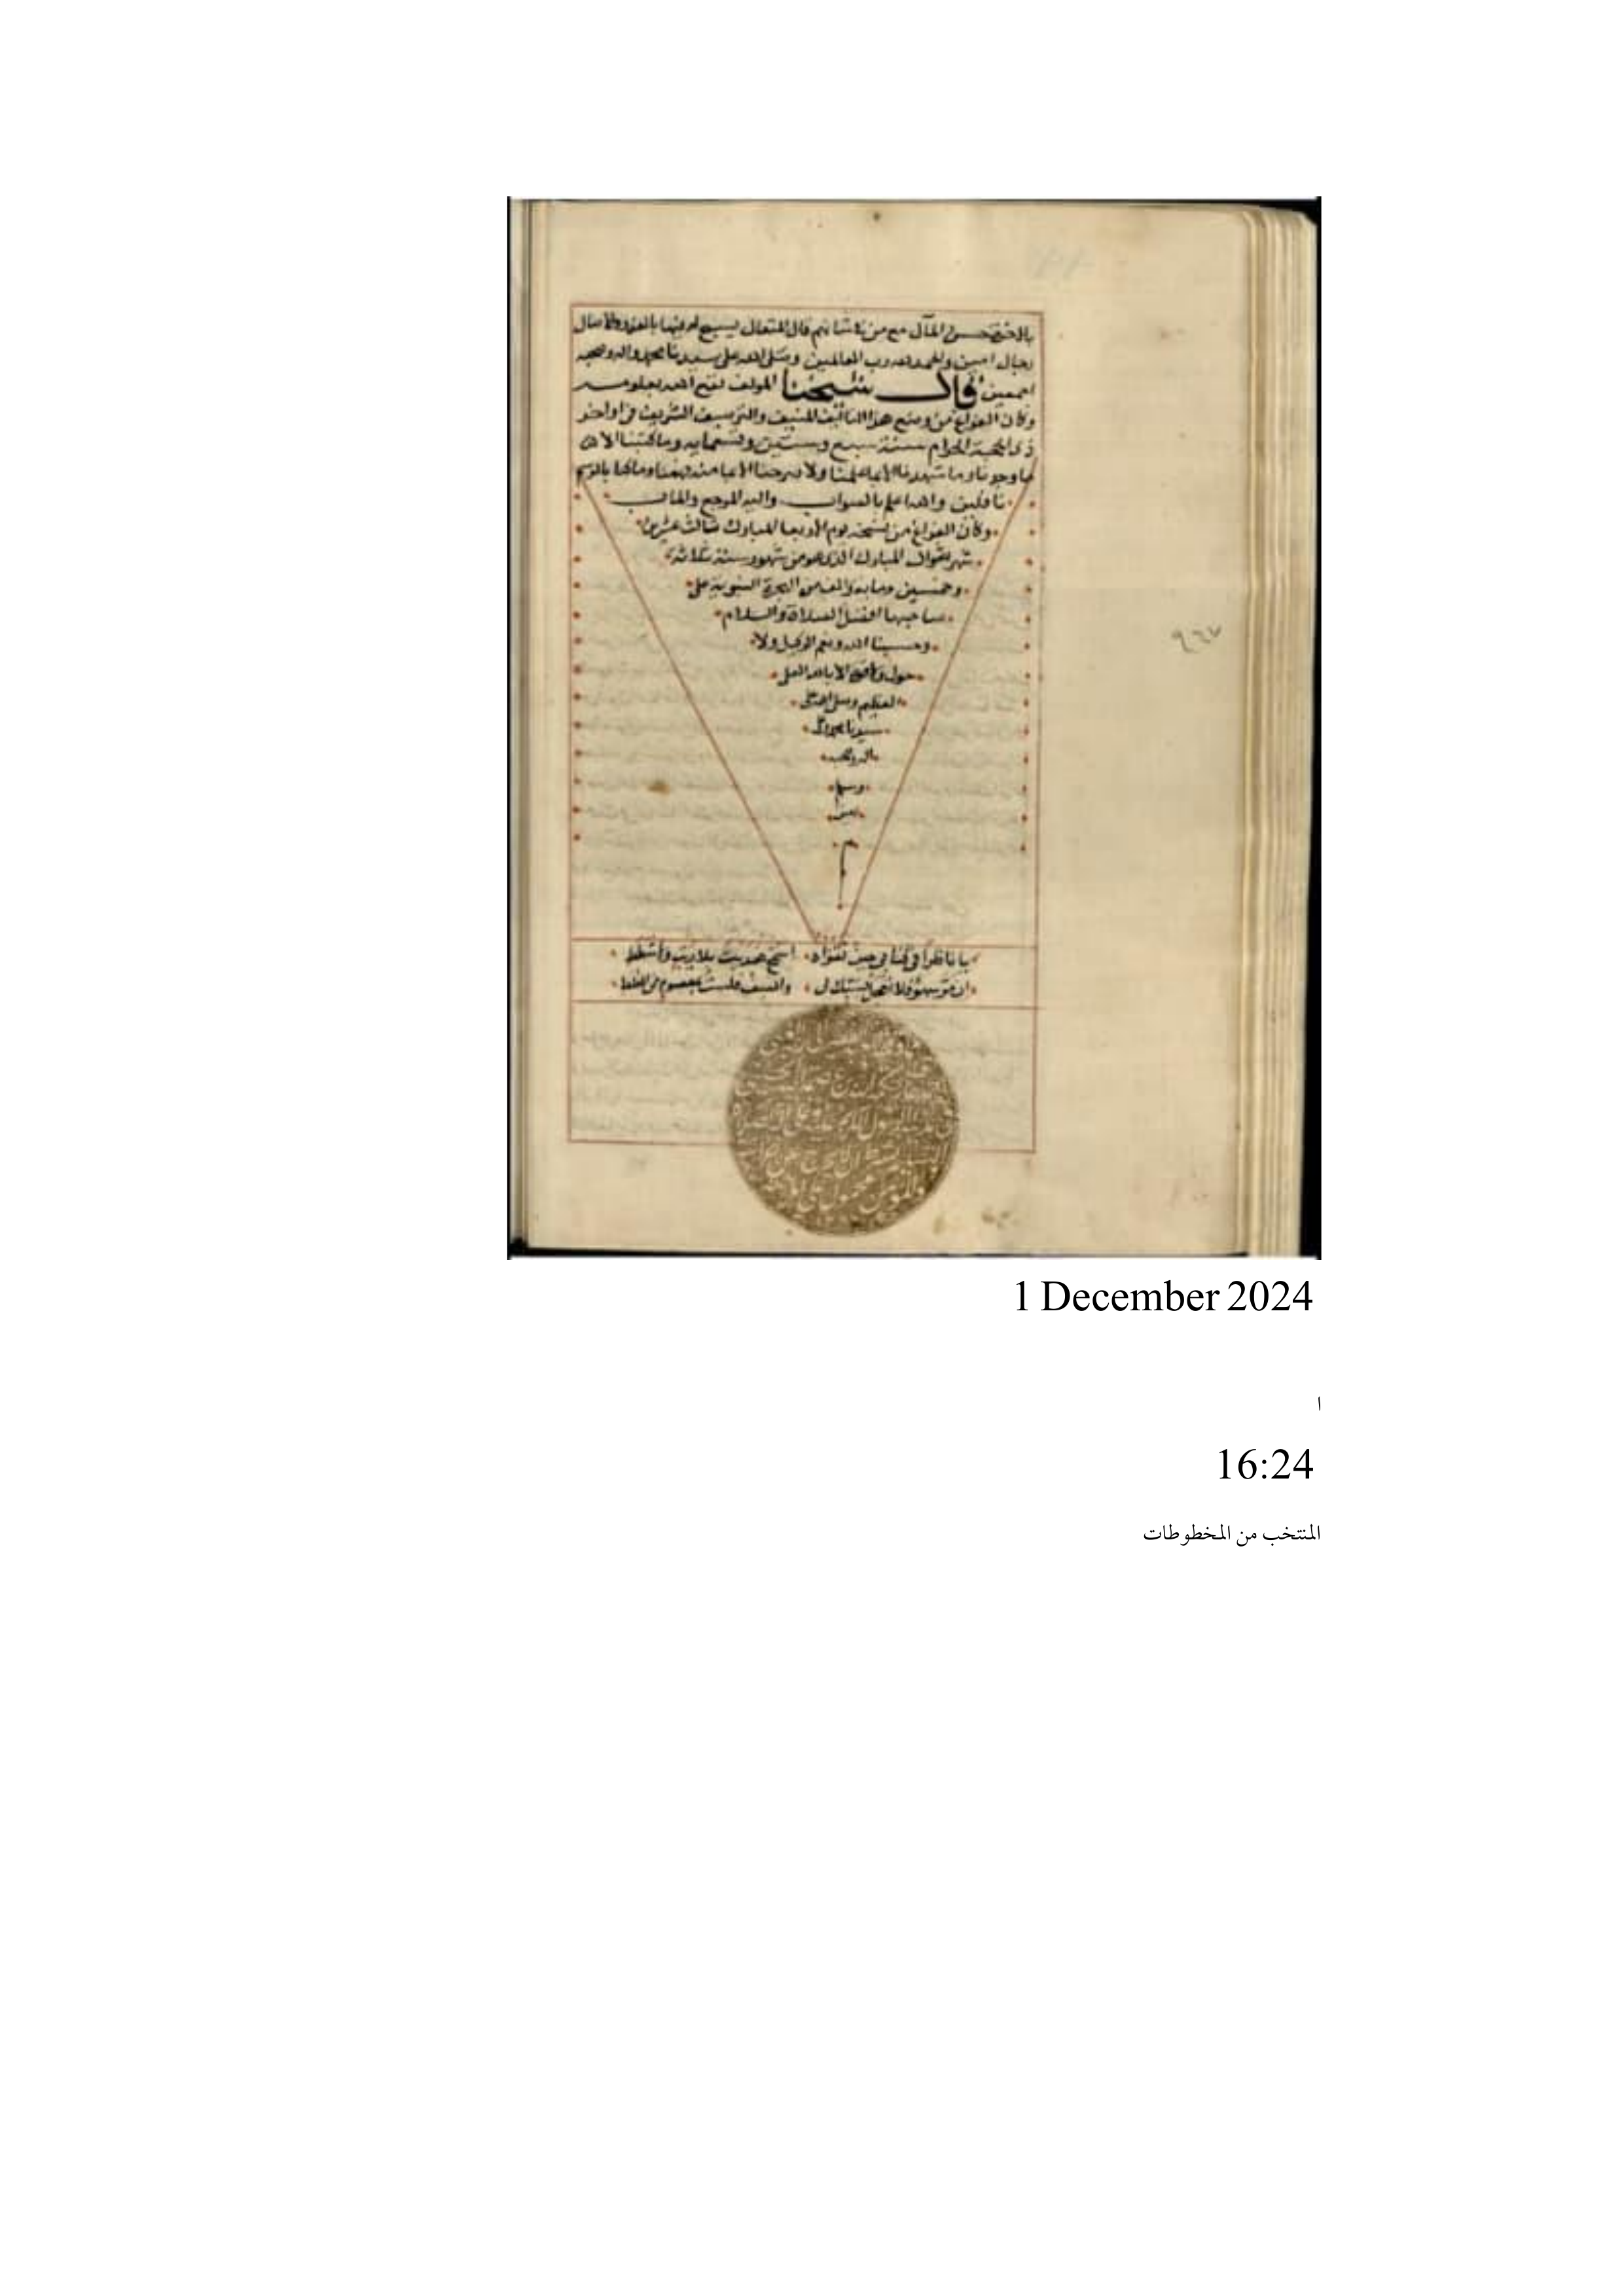 المآل مع من قال المتعال يسبح له فيها بالغدو والاصال
رجال امين والحمد لله رب العالمين وصلى الله على سيدنا محمد واله وصحبه
اجمعين قال شيخنا المولف نفع الله بعلومه
وكان الفراغ من وضع هذا التاليف المنيف والترصيف الشريف في اواخر
ذي الحجة الحرام سنة سبع وستين وتسعمايه وما كتبنا الا
ما وجدنا وما شهدنا الا بما علمنا ولا شرحنا الا بما منه فهمنا وما كنا
ناقلين والله اعلم بالصواب واليه المرجع والماب
وكان الفراغ من نسخه يوم الاربعا المبارك ثالث عشرين
شهر شوال المبارك الذي هو من شهور سنة ثلاثة
وخمسين ومايه والف من الهجرة النبوية على
صاحبها افضل الصلاة والسلام
وحسبنا الله ونعم الوكيل ولا
حول ولا قوة الا بالله العلي
العظيم وصلى الله على
سيدنا محمد وعلى
اله وصحبه
وسلم
امين
م
٩٦٧
يا ناظرا في كتابي حين تقراه
ان مر سهو فلا تعجل بسبك لي
1 December 2024
ا
16:24
المنتخب من المخطوطات